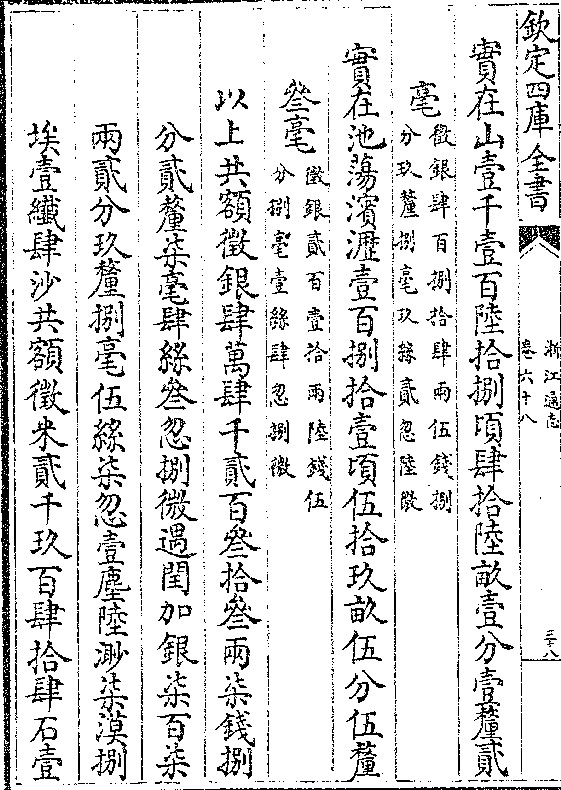 欽定四庫全書
浙江通志
卷六十八
三十八
實在山壹千壹百陸拾捌頃肆拾陸畝壹分壹釐貳
毫
徵銀肆百捌拾肆兩伍錢捌
分玖釐捌毫玖絲貳忽陸微
實在池蕩濱瀝壹百捌拾壹頃伍拾玖畝伍分伍釐
叄毫
徵銀貳百壹拾兩陸錢伍
分捌毫壹絲肆忽捌微
以上共額徵銀肆萬肆千貳百叄拾叄兩柒錢捌
分貳釐柒毫肆絲叄忽捌微遇閏加銀柒百柒
兩貳分玖釐捌毫伍絲柒忽壹塵陸渺柒漠捌
埃壹纖肆沙共額徵米貳千玖百肆拾肆石壹